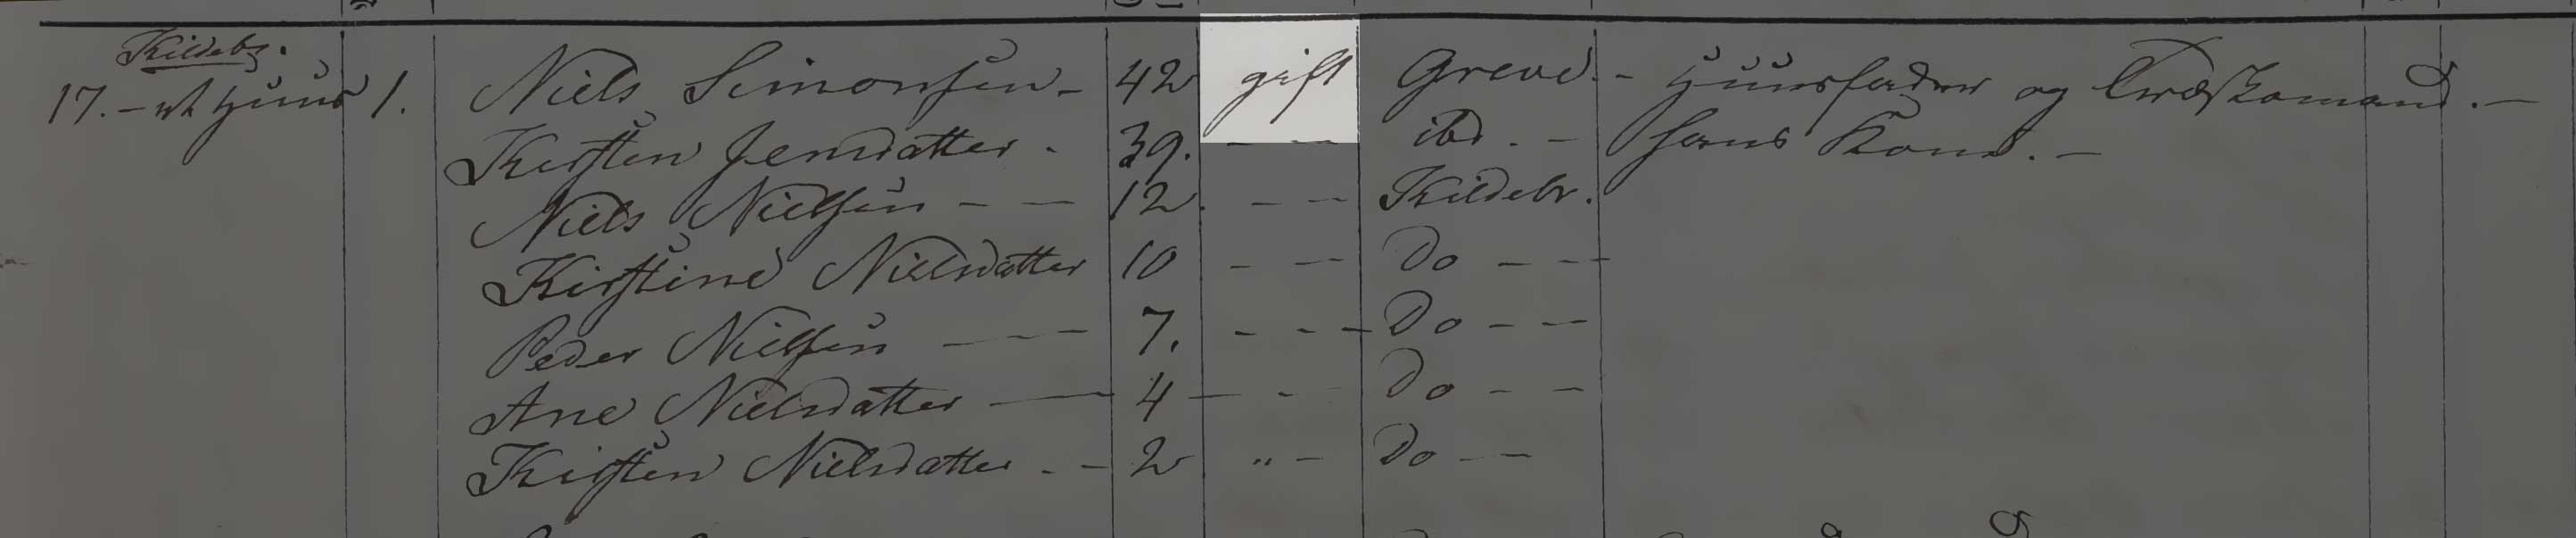 Kildebr.
17. - et Huus 1. Niels Simonsen - 42 gift Greve. - Huusfader og Træskomand. -
Kirsten Jensdatter - 39. - - ibd. - hans Kone. -
Niels Nielsen - - 12. - - Kildebr.
Kirstine Nielsdatter 10 - - Do - -
Peder Nielsen - - 7. - - - Do - -
Ane Nielsdatter - 4 - - Do - -
Kirsten Nielsdatter - - 2 " - Do - -